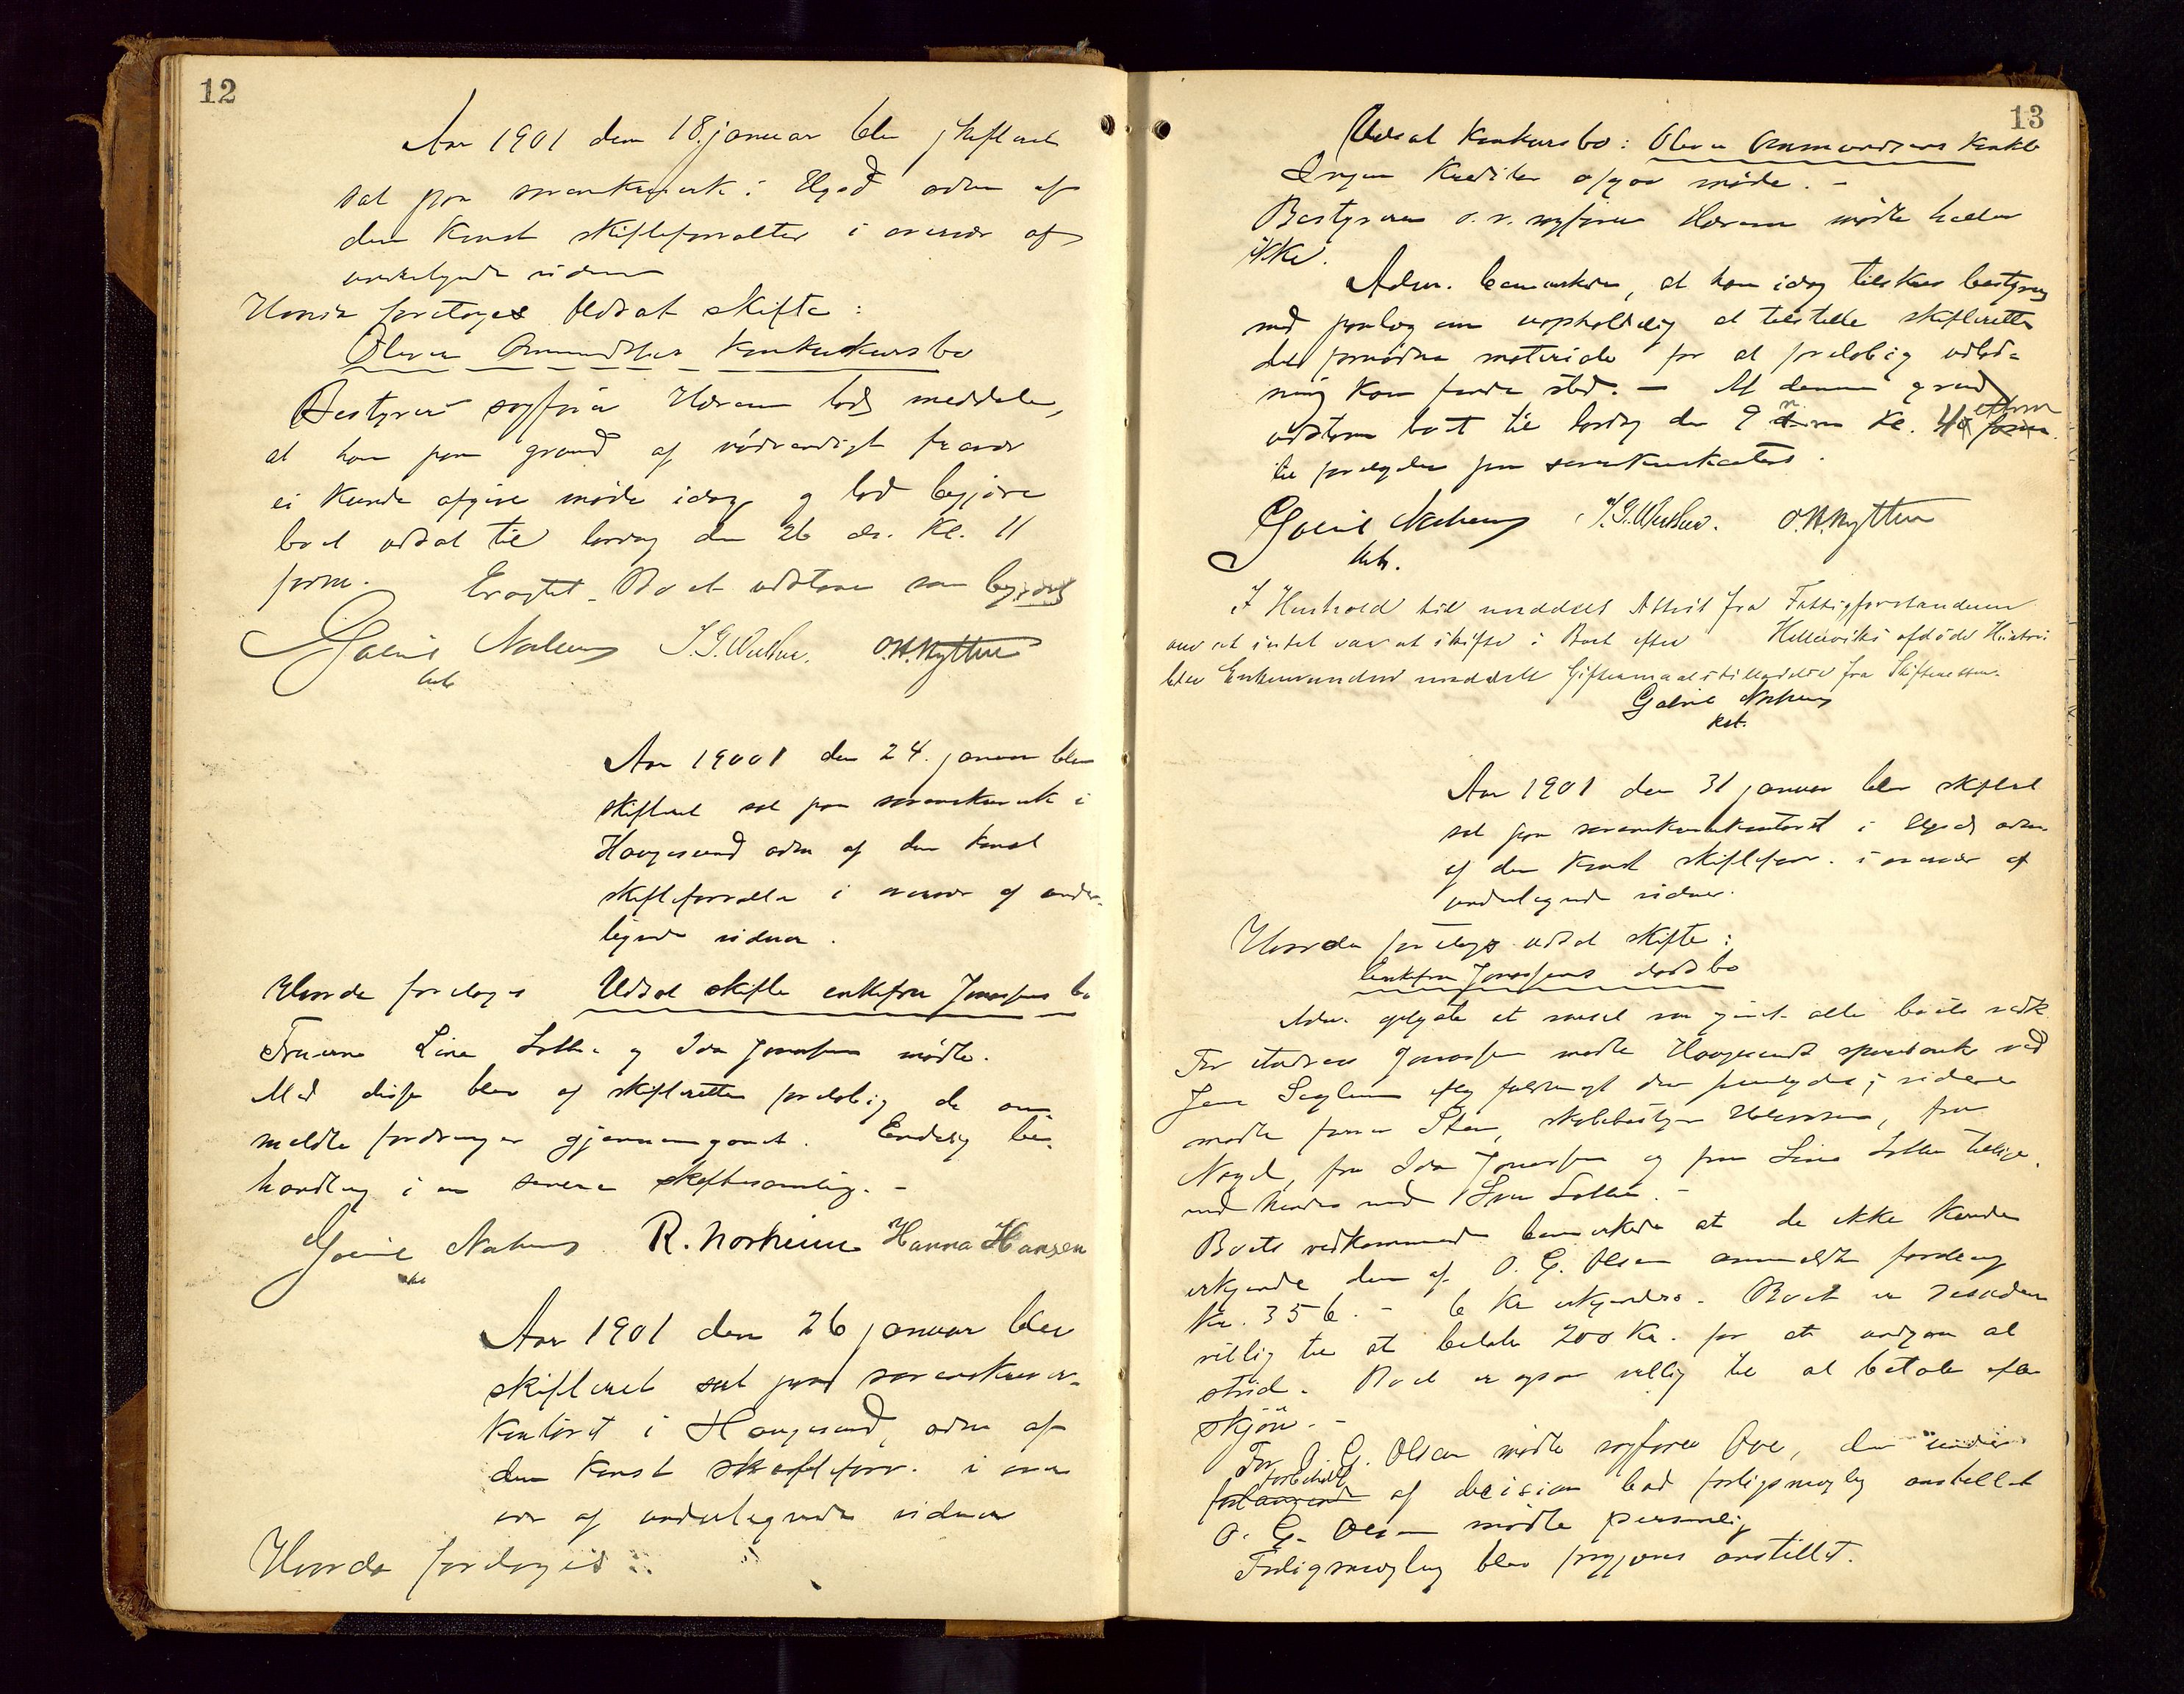 12
Aar 1901 den 18. januar blev skifteret
sat paa sorenskriverk. i Hgsd adm af
den Konst skifteforvalter i overvær af
undertegnede vidner
Hvorda foretoges Udsat skifte:
Oliver Amundsens Konkurskursbo
Bestyrer sagfører Horem lod meddele,
at han paa grund af nødvendigt fravær
ei kunde afgive møde idag og lod begjære
boet udsat til lørdag den 26 ds. Kl. 11
form. Eragtet. Boet udstaar som begjært
Gabriel Nahum J. G. Wester. O.H.Nyttun
kst
Aar 19001 den 24. januar blev
skifteret sat paa sorenskriverk i
Haugesund adm af den Konst
skifteforvalter i overvær af under-
tegnede vidner.
Hvorda foretoges Udsat skifte enkefru Jonassens bo
Fruerne Line Lothe og Ida Jonassen mødte.
Med disse blev af skifteretten foreløbig de an-
meldte fordringer gjennemgaaet. Endelig be-
handling i en senere skiftesamling. -
Gabriel Nahum R. Norheim Hanna Hansen
kst
Aar 1901 den 26 januar blev
skifteret sat paa sorenskriver-
kontoret i Haugesund, adm af
den Konst skifteforv. i over
vær af undertegnede vidner
Hvorda foretoges:
13
Udsat Konkursbo: Oliver Ammundsens Konkb
Ingen Kreditor afgav møde. -
Bestyreren o.r. sagfører Horem mødte heller
ikke.
Adm. bemærkede, at han idag tilskrev bestyrer
med paalæg om uopholdelig at tilstille skifteretten
det fornødne materiale for at foreløbig udlod-
ning kan finde sted. - Af denne grund
udstaar boet til lørdag den 9 n. m Kl. 4 efterm
til foretagelse paa sorenskriverkontoret.
Gabriel Nahum J.G.Wester. O.H.Nyttun
kst.
I Henhold til meddelt Attest fra Fattigforstanderen
om at intet var at skifte i Boet efter Helleviks afdøde Hustru
blev Enkemanden meddelt Giftermaalstilladelse fra Skifteretten.
Gabriel Nahum
kst.
Aar 1901 den 31 januar blev skifteret
sat paa sorenskriverkontoret i Hgsd adm
af den Konst skifteforv. i overvær af
undertegnede vidner.
Hvorda foretoges udsat skifte:
Enkefru Jonassens dødsbo
Adm. oplyste at varsel var givet alle boets vedk.
For Andreas Jonassen mødte Haugesunds sparebank ved
Jens Seglem iflg fuldmagt der fremlagdes; videre
mødte farver Sten, skolebestyrer , fru
Nagel, fru Ida Jonassen og fru Line Lothe tillige
med hendes mand Lothe. -
Boets vedkommende bemærkede at de ikke kunde
erkjende den af O. G. Olsen anmeldte fordring
Kr. 356. - 6 Kr erkjendes. Boet er desuden
villig til at betale 200 Kr. for at undgaa al
strid. Boet er ogsaa villig til at betale efter
skjøn. -
For O. G. Olsen mødte sagfører Boe, der under
forbehold af decision bad forligsmægling anstillet
O. G. Olsen mødte personlig
Forligsmægling blev forgjæves anstillet.